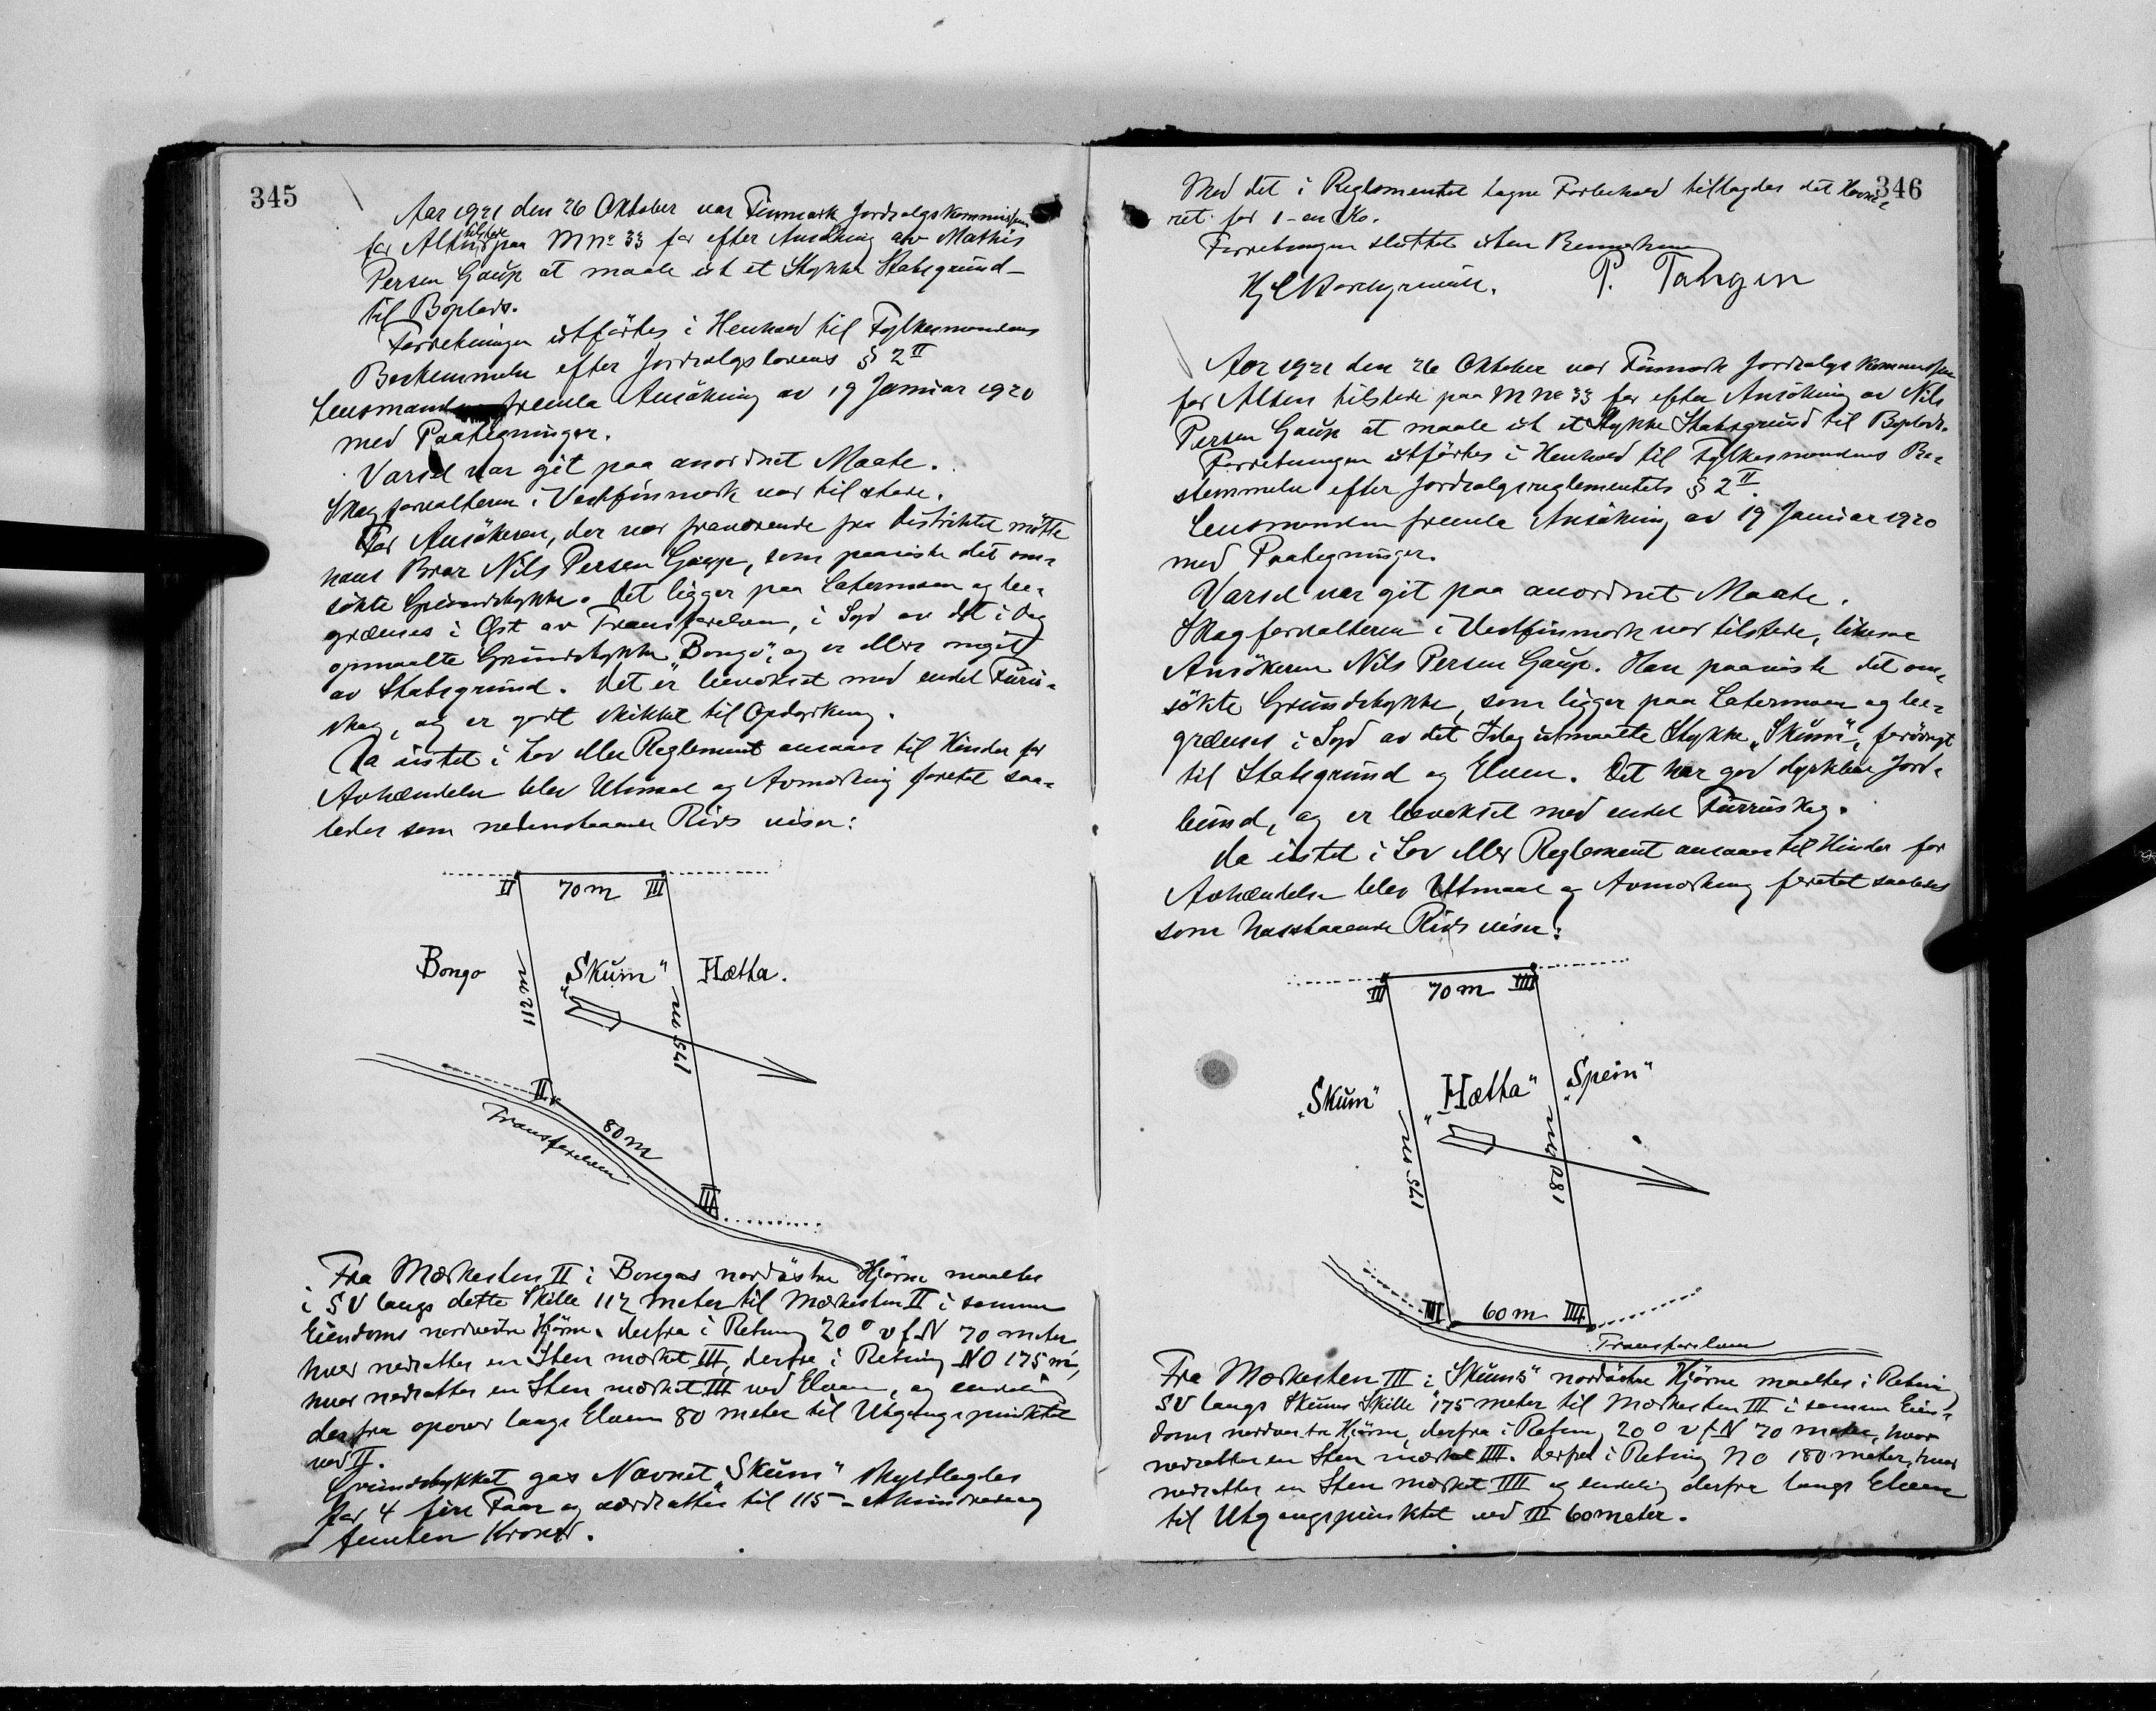 345
Aar 1921 den 26 Oktober var Finmark Jordsalgskommission
for Alten tilstede paa M No 33 for efter Ansökning av Mathis
Persen Gaup at maale ut et Stykke Statsgrund
til Boplads.
Forretningen utförtes i Henhold til Fylkesmandens
Bestemmelse efter Jordsalgslovens § 2 II
Lensmanden fremla Ansökning av 19 Januar 1920
med Paategninger.
Varsel var git paa anordnet Maate.
Skogforvalteren i Vestfinmark var tilstede.
For Ansökeren, der var fraværende fra Distriktet mötte
hans Bror Nils Persen Gaup, som paaviste det om-
sökte Grundstykke. Det ligger paa Latermoen og be-
grænses i Öst av Transfarelven, i Syd av det i Dag
opmaalte Grundstykke "Bongo", og er ellers omgit
av Statsgrund. Det er bevokset med endel Furu-
skog, og er godt skikket til Opdyrkning.
Da intet i Lov eller Reglement ansaaes til Hinder for
Avhændelse blev Utmaal og Avmerkning foretat saa-
ledes som nedenstaaende Rids viser:
II 70 m III
Bongo 112 m "Skum" 175 m Hætta.
II
80 m
Transfarelven
III
Fra Merkesten II i Bongos nordöstre Hjörne maaltes
i SV langs dette Skille 112 meter til Merkesten II i samme
Eiendoms nordvestre Hjörne, derfra i Retning 20° v f. N 70 meter
hvor nedsattes en Sten merket III, derfra i Retning NO 175 m,
hvor nedsattes en Sten merket III ved Elven, og endelig
derfra opover langs Elven 80 meter til Utgangspunktet
ved II.
Grundstykket gaves Navnet "Skum" skyldlagdes
for 4 fire Faar og værdsattes til 115 - et hundrede og
femten Kroner.
346
Med det i Reglementet tagne Forbehold tillagdes det Havne-
ret for 1 - en Ko.
Forretningen sluttet uten Bemerkning
P. Tangen
Aar 1921 den 26 Oktober var Finmark Jordsalgskommission
for Alten tilstede paa M No 33 for efter Ansökning av Nils
Persen Gaup at maale ut et Stykke Statsgrund til Boplads.
Forretningen utförtes i Henhold til Fylkesmandens Be-
stemmelse efter Jordsalgsreglementets § 2 II.
Lensmanden fremla Ansökning av 19 Januar 1920
med Paategninger.
Varsel var git paa anordnet Maate.
Skogforvalteren i Vestfinmark var tilstede, likesaa
Ansökeren Nils Persen Gaup. Han paaviste det om-
sökte Grundstykke, som ligger paa Latermoen og be-
grænses i Syd av det Idag utmaalte Stykke "Skum", forövrigt
til Statsgrund og Elven. Det har god dyrkbar Jord-
bund, og er bevokset med endel Furruskog.
Da intet i Lov eller Reglement ansaaes til Hinder for
Avhændelse blev Utmaal og Avmerkning foretat saaledes
som hosstaaende Rids viser:
III 70 m IIII
"Skum" 175 m "Hætta" 180 m "Spein"
III 60 m IIII
Transfarelven
Fra Merkesten III i "Skums" nordöstre Hjörne maaltes i Retning
SV langs Skums Skille 175 meter til Merkesten III i samme Eien-
doms nordvestre Hjörne, derfra i Retning 20° v f. N 70 meter, hvor
nedsattes en Sten merket IIII. derfra i Retning NO 180 meter, hvor
nedsattes en Sten merket IIII og endelig derfra langs Elven
til Utgangspunktet ved III 60 meter.